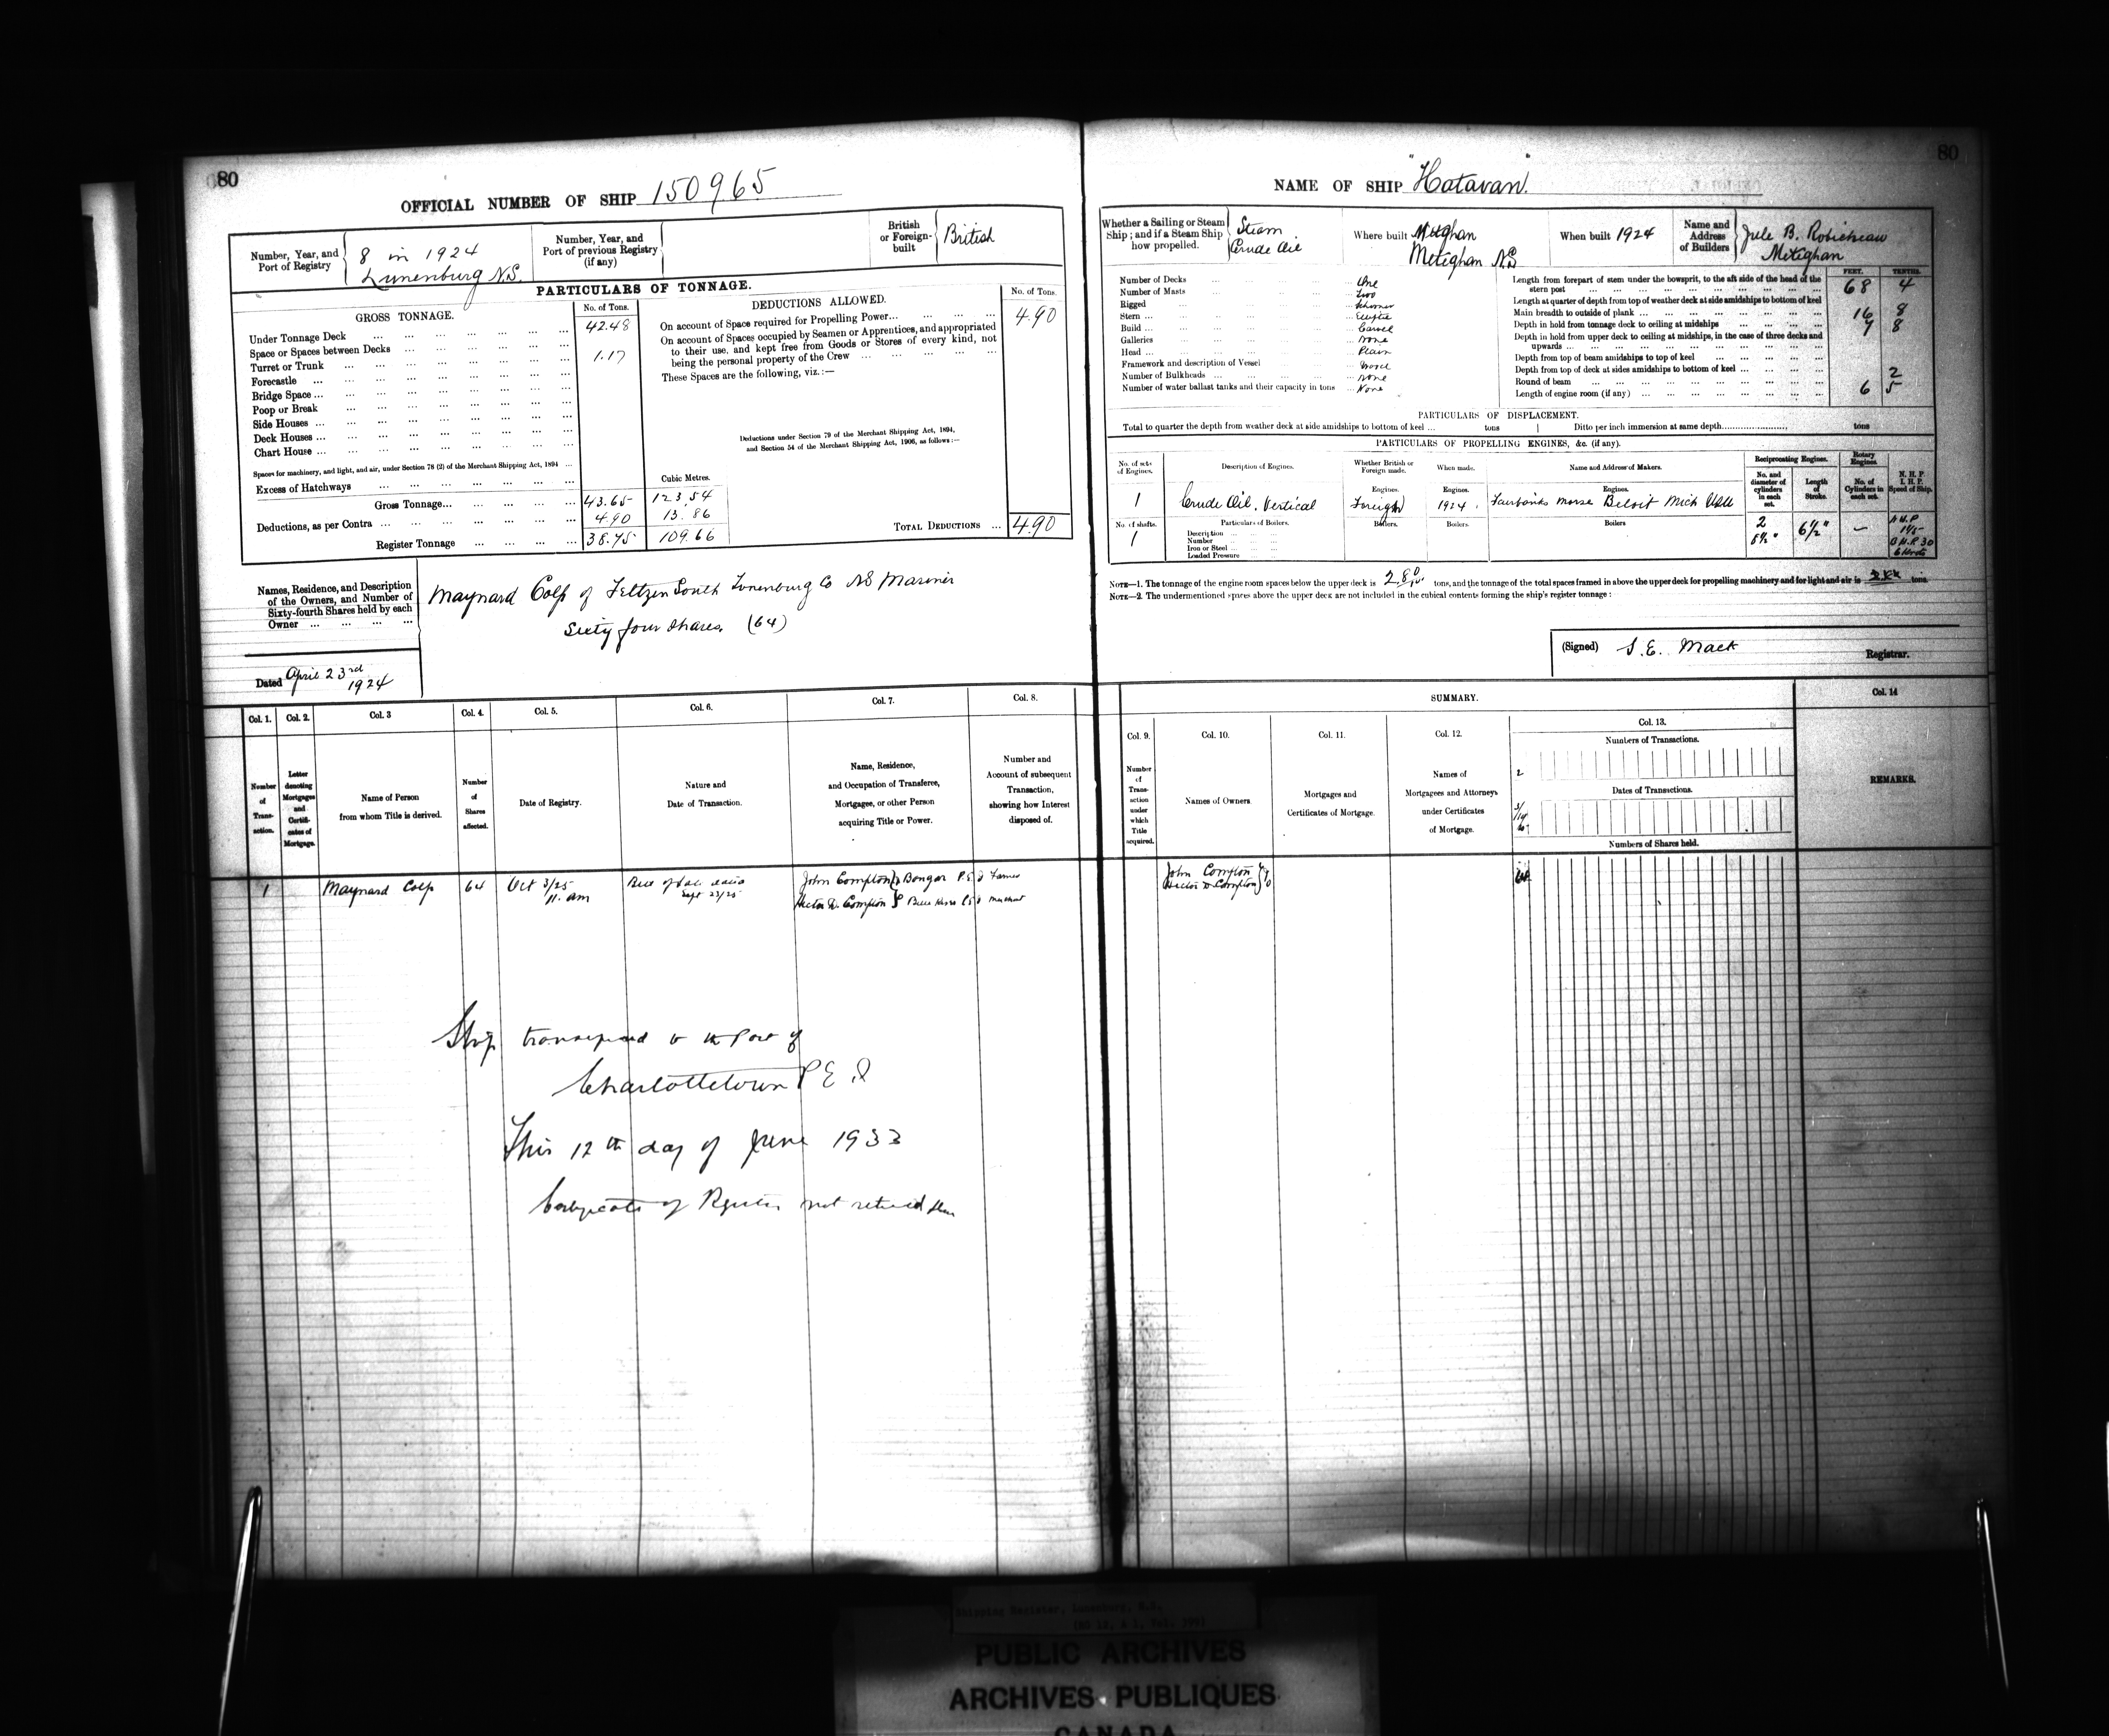 80
OFFICIAL NUMBER OF SHIP 150965
Number, Year, and Port of Registry
8 in 1924
Lunenburg N.S.
Number, Year, and Port of previous Registry (if any)
British or Foreign-built
British
PARTICULARS OF TONNAGE.
GROSS TONNAGE.
No. of Tons.
DEDUCTIONS ALLOWED.
No. of Tons.
Under Tonnage Deck ... 42.48
Space or Spaces between Decks ...
Turret or Trunk ... 1.17
Forecastle ...
Bridge Space ...
Poop or Break ...
Side Houses ...
Deck Houses ...
Chart House ...
Spaces for machinery, and light, and air, under Section 78 (2) of the Merchant Shipping Act, 1894 ...
Excess of Hatchways ...
Cubic Metres.
Gross Tonnage... 43.65 123.54
Deductions, as per Contra ... 4.90 13.86
Register Tonnage ... 38.75 109.66
On account of Space required for Propelling Power... 4.90
On account of Spaces occupied by Seamen or Apprentices, and appropriated
to their use, and kept free from Goods or Stores of every kind, not
being the personal property of the Crew ...
These Spaces are the following, viz.:—
Deductions under Section 79 of the Merchant Shipping Act, 1894,
and Section 54 of the Merchant Shipping Act, 1906, as follows:—
TOTAL DEDUCTIONS ... 4.90
Names, Residence, and Description
of the Owners, and Number of
Sixty-fourth Shares held by each
Owner ...
Maynard Colp of Feltzen South Lunenburg Co NS Mariner
Sixty four shares. (64)
Dated April 23rd
1924
Col. 1. Col. 2. Col. 3 Col. 4. Col. 5. Col. 6. Col. 7. Col. 8.
Number of Transaction.
Letter denoting Mortgages and Certificates of Mortgage.
Name of Person from whom Title is derived.
Number of Shares affected.
Date of Registry.
Nature and Date of Transaction.
Name, Residence, and Occupation of Transferee, Mortgagee, or other Person acquiring Title or Power.
Number and Account of subsequent Transaction, showing how Interest disposed of.
1 Maynard Colp 64 Oct 3/25 Bill of Sale dated John Compton Bangor P.E.I Farmer
11. am Sept 23/25 Hector D. Compton
Ship transferred to the Port of
Charlottetown P E I
This 12th day of June 1933
Certificate of Register not returned
80
NAME OF SHIP "Hatavan"
Whether a Sailing or Steam Ship; and if a Steam Ship how propelled.
Steam
Crude Oil
Where built
Meteghan N.S
When built 1924
Name and Address of Builders
Jule B. Robicheau
Meteghan
Number of Decks ... One
Number of Masts ... Two
Rigged ... Schooner
Stern ... Elliptic
Build ... Carvel
Galleries ... None
Head ... Plain
Framework and description of Vessel ... Wood
Number of Bulkheads ... None
Number of water ballast tanks and their capacity in tons ... None
FEET. TENTHS.
Length from forepart of stem under the bowsprit, to the aft side of the head of the
stern post ... 68 4
Length at quarter of depth from top of weather deck at side amidships to bottom of keel
Main breadth to outside of plank ... 16 8
Depth in hold from tonnage deck to ceiling at midships ... 7 8
Depth in hold from upper deck to ceiling at midships, in the case of three decks and
upwards ...
Depth from top of beam amidships to top of keel ...
Depth from top of deck at sides amidships to bottom of keel ...
Round of beam ... 2
Length of engine room (if any) ... 6 5
PARTICULARS OF DISPLACEMENT.
Total to quarter the depth from weather deck at side amidships to bottom of keel ... tons
Ditto per inch immersion at same depth... tons
PARTICULARS OF PROPELLING ENGINES, &c. (if any).
No. of sets of Engines.
Description of Engines.
Whether British or Foreign made.
When made.
Name and Address of Makers.
Reciprocating Engines.
No. and diameter of cylinders in each set.
Length of Stroke.
Rotary Engines.
No. of Cylinders in each set.
N. H. P.
I. H. P.
Speed of Ship.
Engines. Engines. Engines.
1 Crude Oil. Vertical Foreign 1924 Fairbanks Morse Beloit Mich
No. of shafts. Particulars of Boilers. Boilers. Boilers. Boilers
1
Description ...
Number ...
Iron or Steel ...
Loaded Pressure ...
2 6½" —
B.H.P 30
NOTE—1. The tonnage of the engine room spaces below the upper deck is 2.80 tons, and the tonnage of the total spaces framed in above the upper deck for propelling machinery and for light and air is tons.
NOTE—2. The undermentioned spaces above the upper deck are not included in the cubical contents forming the ship's register tonnage:
(Signed) S. E. Mack
Registrar.
SUMMARY.
Col. 9. Col. 10. Col. 11. Col. 12. Col. 13. Col. 14
Number of Transaction under which Title acquired.
Names of Owners.
Mortgages and Certificates of Mortgage.
Names of Mortgagees and Attorneys under Certificates of Mortgage.
Numbers of Transactions.
Dates of Transactions.
Numbers of Shares held.
REMARKS.
John Compton
Hector D Compton
Shipping Register, Lunenburg, N.S.
PUBLIC ARCHIVES
ARCHIVES PUBLIQUES
CANADA